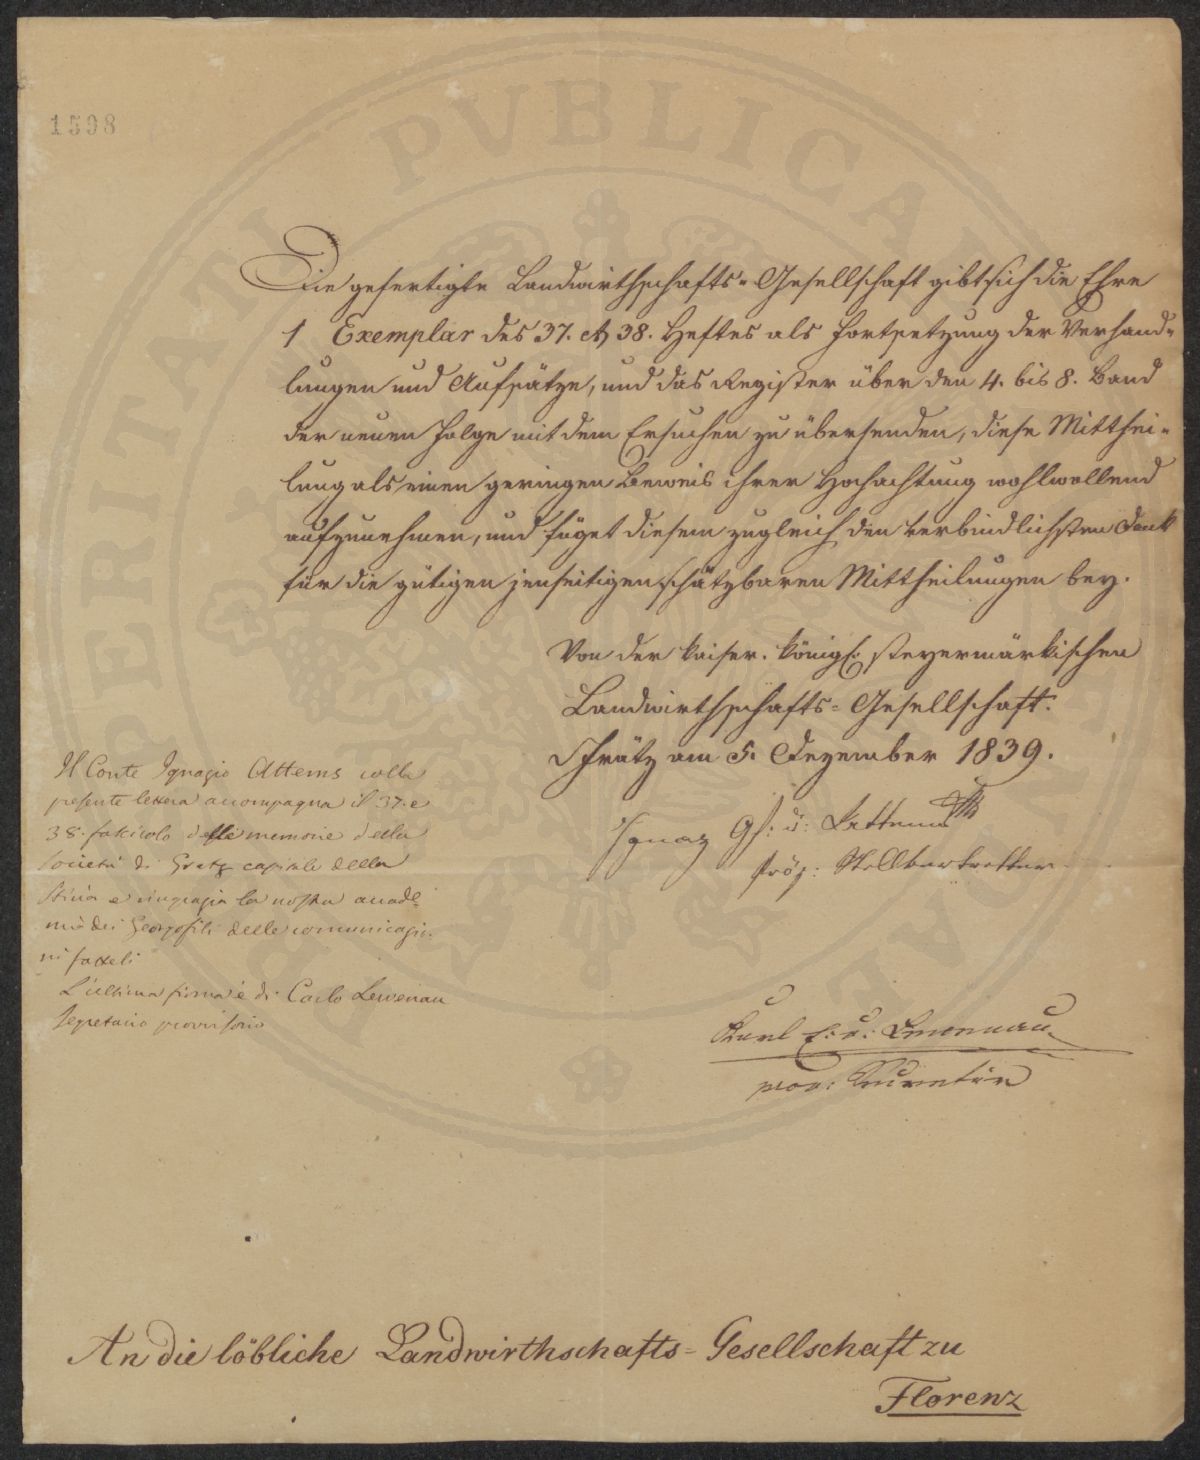 1598
PVBLICAE
Die gefertigte Landwirthschafts-Gesellschaft gibt sich die Ehre
1 Exemplar des 37. et 38. Heftes als Fortsetzung der Verhand-
lungen und Aufsätze, und das Register über den 4. bis 8. Band
der neuen Folge mit dem Ersuchen zu übersenden, diese Mitthei-
lung als einen geringen Beweis ihrer Hochachtung wohlwollend
aufzunehmen, und füget diesem zugleich den verbindlichsten Dank
für die gütigen jenseitigen schätzbaren Mittheilungen bey.
Von der kaiser. königl. steyermärkischen
Landwirthschafts-Gesellschaft.
Grätz am 5. Dezember 1839.
Ignaz Gf: v: Attems
Präs: Stellvertretter
Il Conte Ignazio Attems colla
presente lettera accompagna il 37. e
38. fascicolo delle memorie della
Società di Gratz capitale della
Stiria e ringrazia la nostra accade-
mia dei Georgofili delle comunicazio-
ni fatteli
L'ultima firma è di Carlo Lewenau
Segretario provvisorio
Karl E: v: Lewenau
prov: Secretär
An die löbliche Landwirthschafts-Gesellschaft zu
Florenz